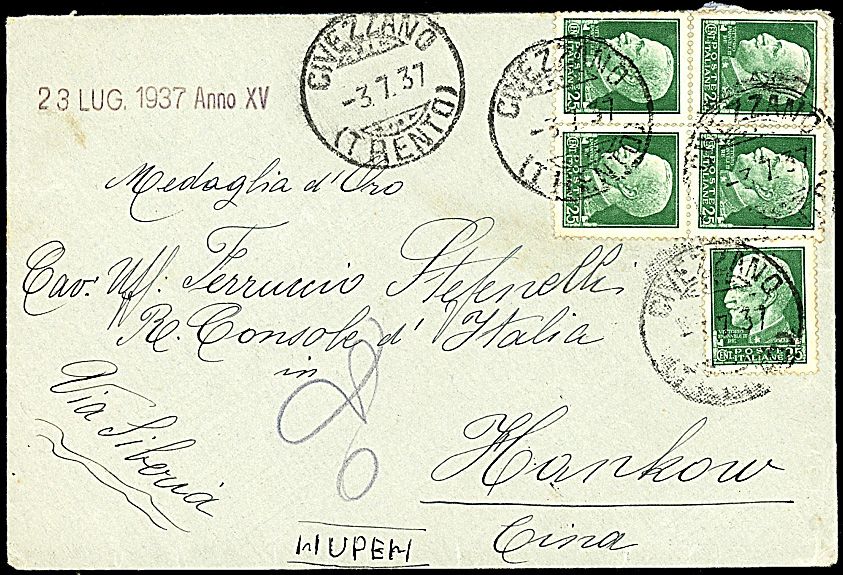 CIVEZZANO
-3.7.37
(TRENTO)
23 LUG. 1937 Anno XV
CIVEZZANO
-3.7.37
(TRENTO)
Medaglia d'Oro
Cav. Uff. Ferruccio Stefenelli
R. Console d'Italia
in
Via Siberia
Hankow
Cina
HUPEH
CIVEZZANO
POSTE
ITALIANE
CENT. 25